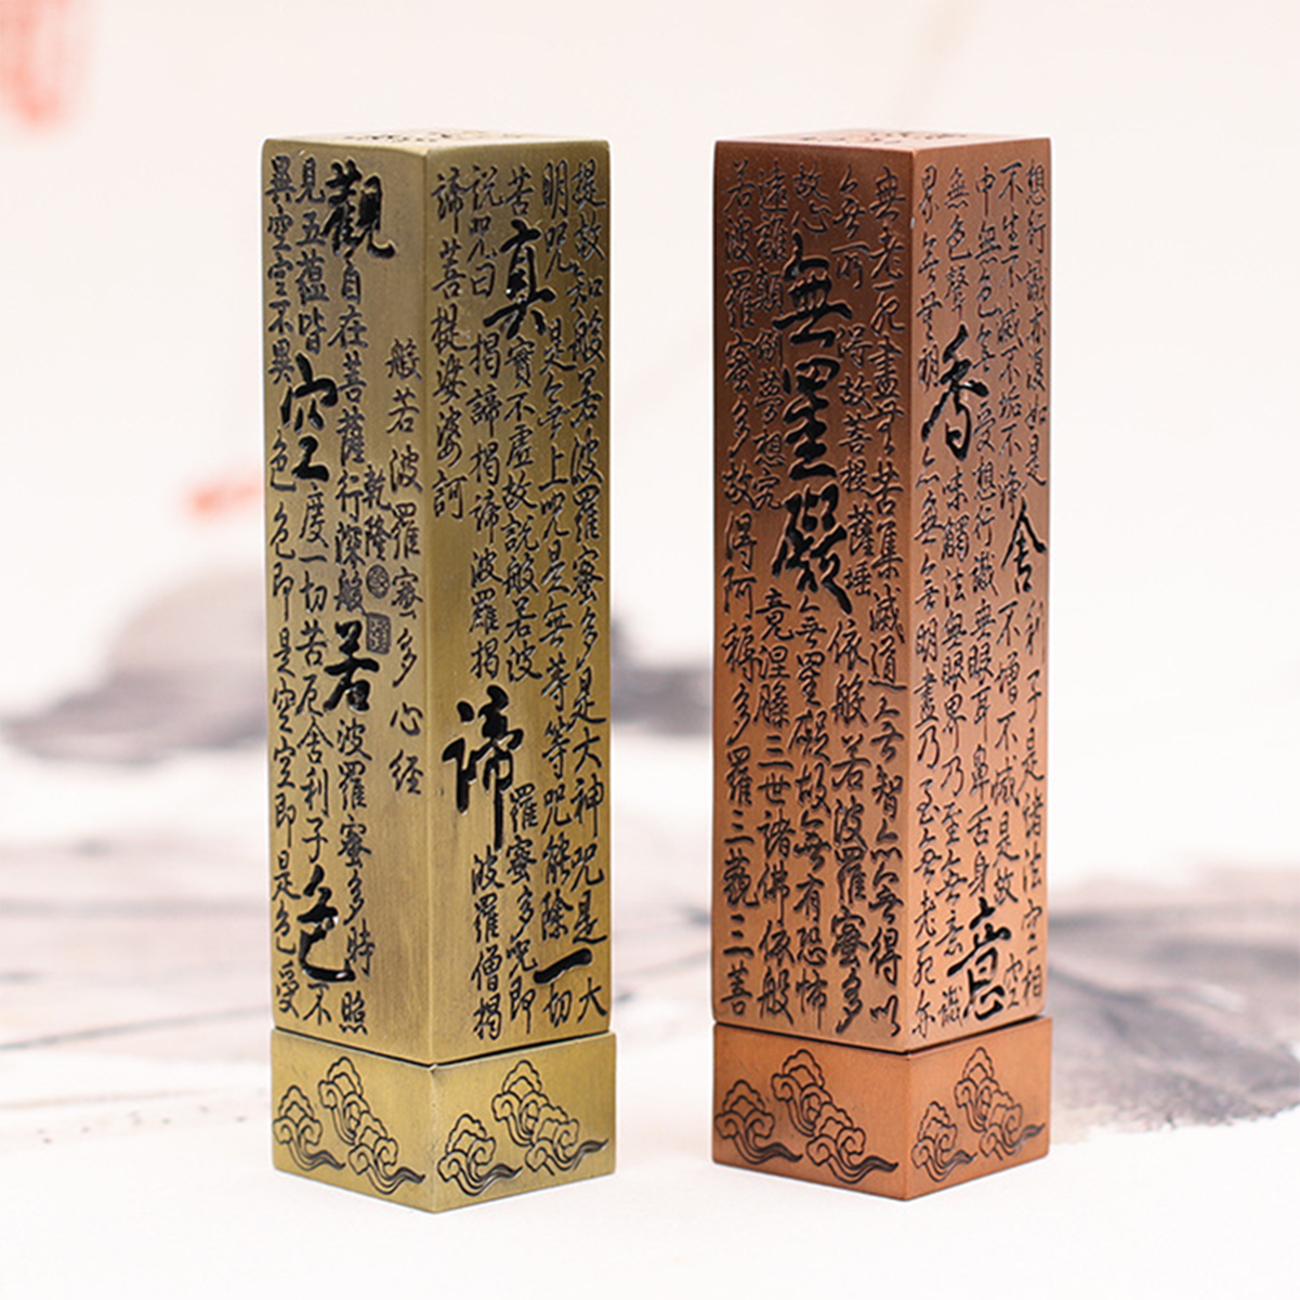 般若波羅蜜多心經
乾隆
觀自在菩薩行深般若波羅蜜多時照
見五蘊皆空度一切苦厄舍利子色不
異空空不異色色即是空空即是色受
提故知般若波羅蜜多是大神咒是大
明咒是無上咒是無等等咒能除一切
苦真實不虛故說般若波羅蜜多咒即
說咒曰揭諦揭諦波羅揭諦波羅僧揭
諦菩提娑婆訶
想行識亦復如是舍利子是諸法空相
不生不滅不垢不淨不增不減是故空
中無色無受想行識無眼耳鼻舌身意
無色聲香味觸法無眼界乃至無意識
界無無明亦無無明盡乃至無老死亦
無老死盡無苦集滅道無智亦無得以
無所得故菩提薩埵依般若波羅蜜多
故心無罣礙無罣礙故無有恐怖
遠離顛倒夢想究竟涅槃三世諸佛依般
若波羅蜜多故得阿耨多羅三藐三菩